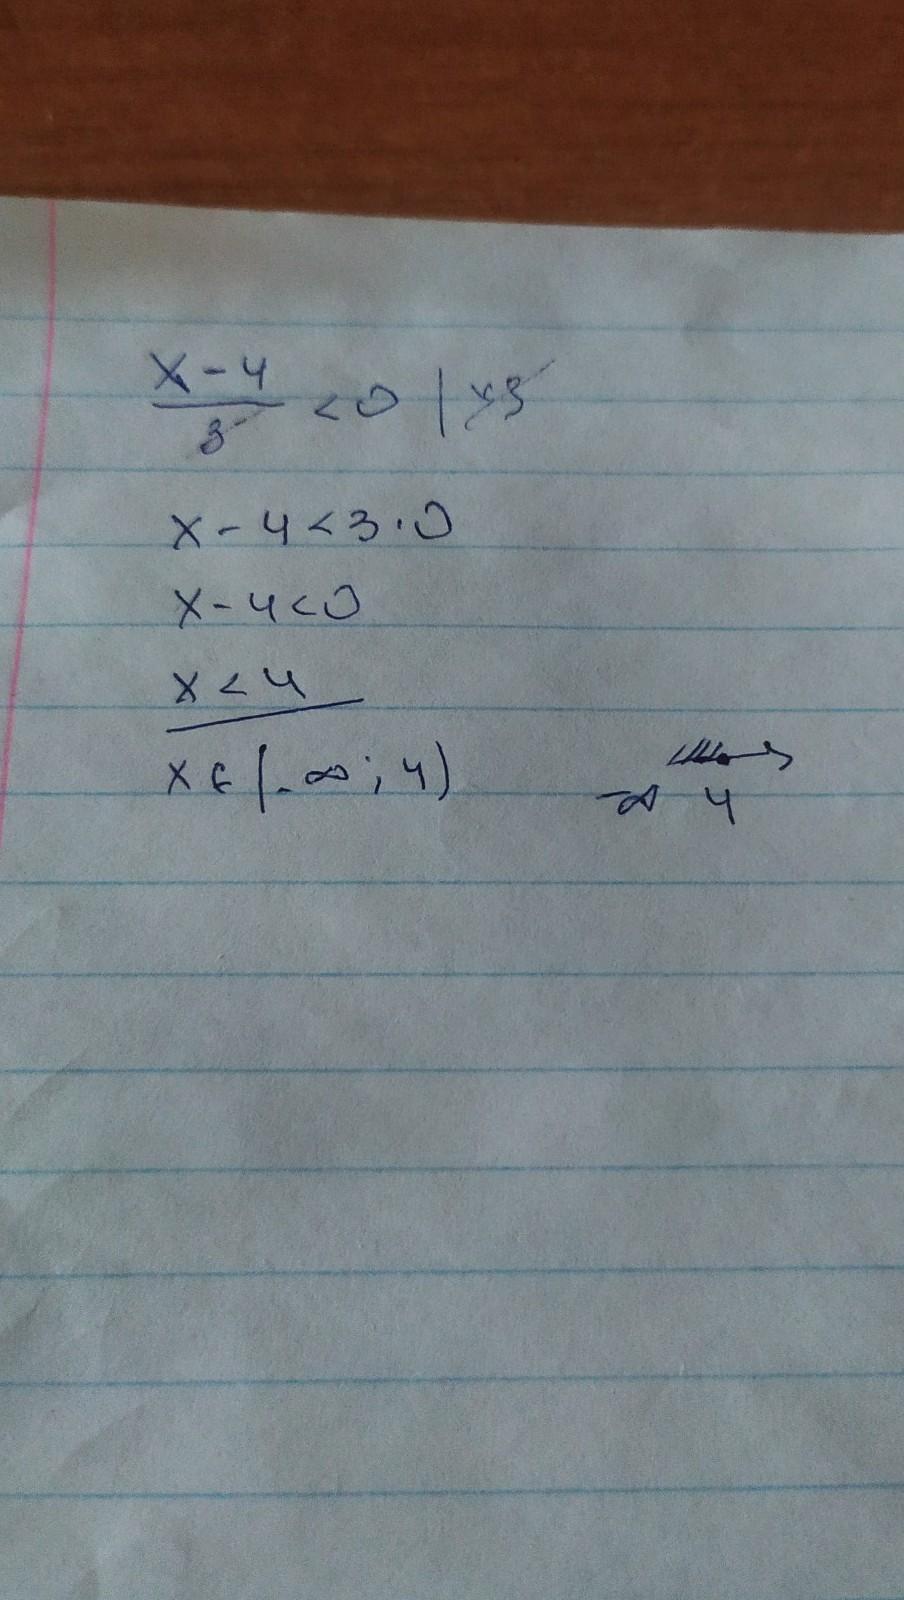 x-4/3 <0 | x3
x-4<3·0
x-4<0
x<4
x∈(-∞;4)
-∞ 4